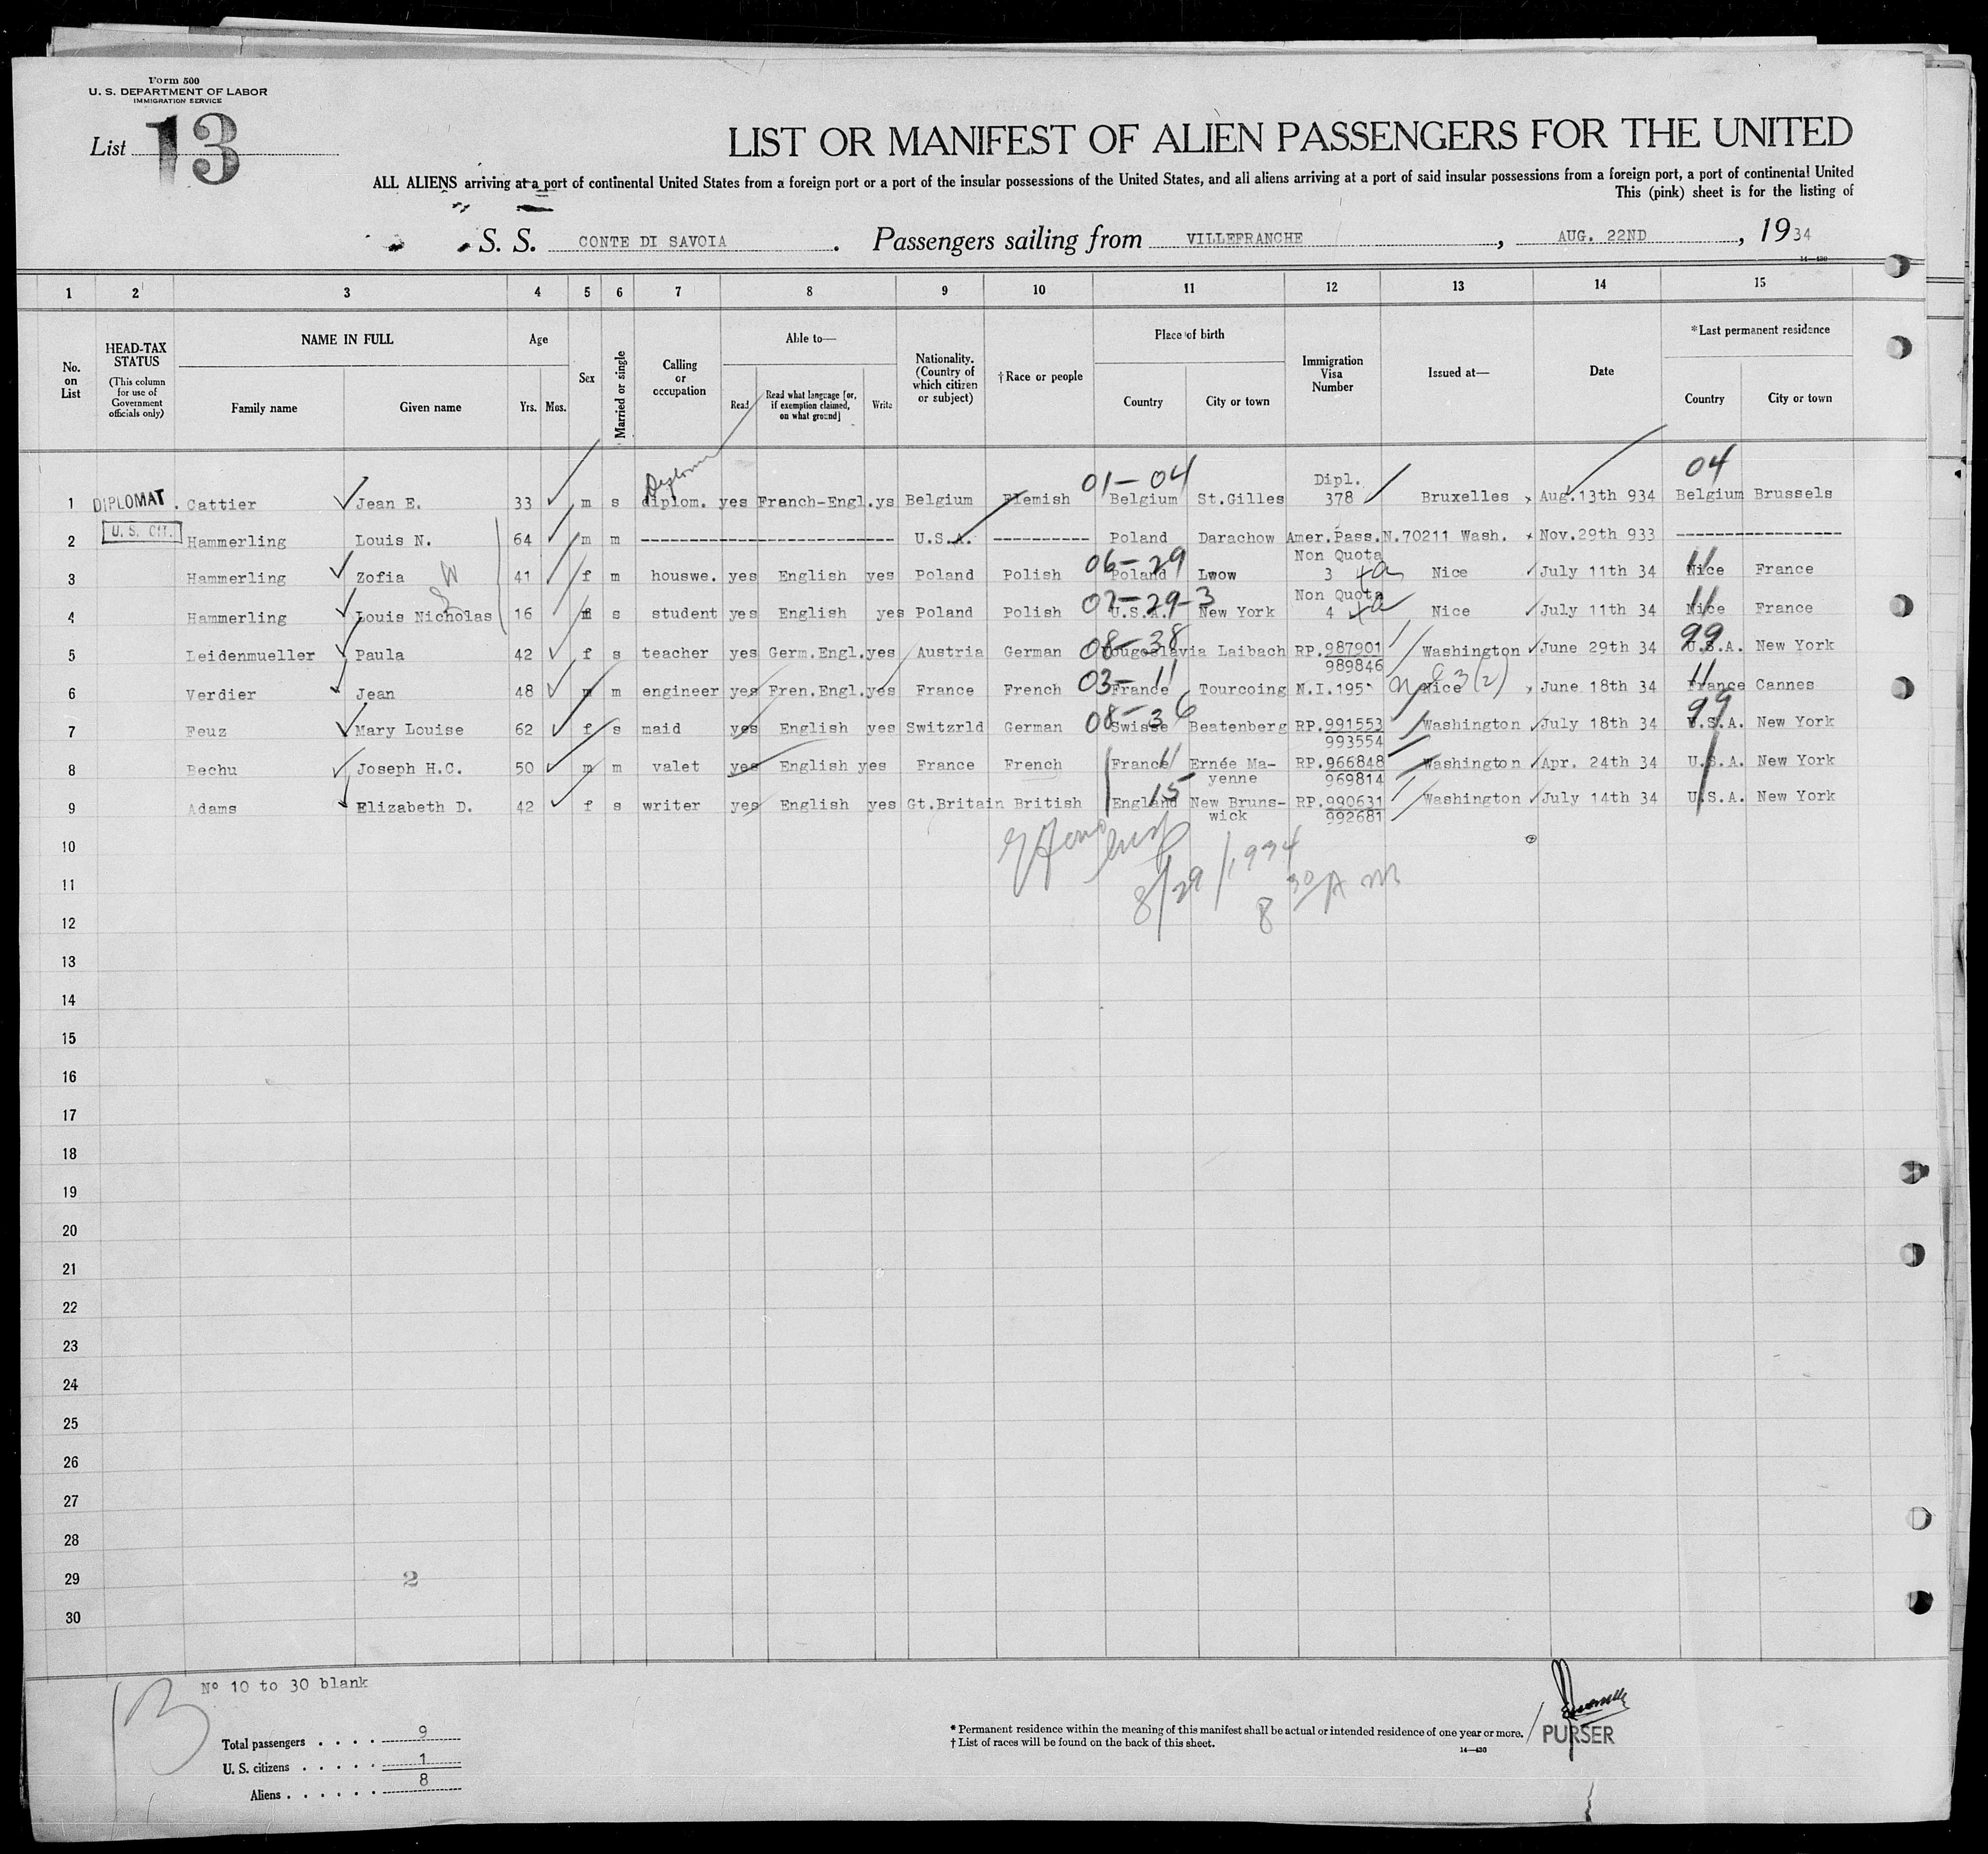 Form 500
U. S. DEPARTMENT OF LABOR
IMMIGRATION SERVICE
List 13
LIST OR MANIFEST OF ALIEN PASSENGERS FOR THE UNITED
ALL ALIENS arriving at a port of continental United States from a foreign port or a port of the insular possessions of the United States, and all aliens arriving at a port of said insular possessions from a foreign port, a port of continental United
This (pink) sheet is for the listing of
S. S. CONTE DI SAVOIA. Passengers sailing from VILLEFRANCHE, AUG. 22ND, 1934
14—430
1 2 3 4 5 6 7 8 9 10 11 12 13 14 15
No. on List
HEAD-TAX STATUS (This column for use of Government officials only)
NAME IN FULL
Family name Given name
Age
Yrs. Mos.
Sex
Married or single
Calling or occupation
Able to—
Read Read what language [or, if exemption claimed, on what ground] Write
Nationality. (Country of which citizen or subject)
†Race or people
Place of birth
Country City or town
Immigration Visa Number
Issued at—
Date
*Last permanent residence
Country City or town
Diplomat 01-04 Dipl. 04
1 DIPLOMAT. Cattier Jean E. 33 m s diplom. yes Franch-Engl.ys Belgium Flemish Belgium St.Gilles 378 Bruxelles Aug.13th 934 Belgium Brussels
2 U. S. CIT. Hammerling Louis N. 64 m m ---------- U.S.A. ---------- Poland Darachow Amer.Pass.N.70211 Wash. Nov.29th 933 ----------
06-29 Non Quota 11
3 Hammerling Zofia W 41 f m houswe. yes English yes Poland Polish Poland Lwow 3 4a Nice July 11th 34 Nice France
07-29-3 Non Quota 11
4 Hammerling Louis Nicholas 16 s student yes English yes Poland Polish U.S.A. New York 4 4a Nice July 11th 34 Nice France
08-38 99
5 Leidenmueller Paula 42 f s teacher yes Germ.Engl.yes Austria German Yougoslavia Laibach RP.987901 Washington June 29th 34 U.S.A. New York
989846
03-11 3(2) 11
6 Verdier Jean 48 m m engineer yes Fren.Engl.yes France French France Tourcoing N.I.195 Nice June 18th 34 France Cannes
08-36 99
7 Feuz Mary Louise 62 f s maid yes English yes Switzrld German Swisse Beatenberg RP.991553 Washington July 18th 34 U.S.A. New York
993554
11
8 Bechu Joseph H.C. 50 m m valet yes English yes France French France Ernée Ma- RP.966848 Washington Apr. 24th 34 U.S.A. New York
yenne 969814
15
9 Adams Elizabeth D. 42 f s writer yes English yes Gt.Britain British England New Bruns- RP.990631 Washington July 14th 34 U.S.A. New York
wick 992681
10
8/29/1934
11
8 30/A M
12
13
14
15
16
17
18
19
20
21
22
23
24
25
26
27
28
29 2
30
Nº 10 to 30 blank
13
Total passengers . . . . 9
U. S. citizens . . . . . 1
Aliens . . . . . . 8
* Permanent residence within the meaning of this manifest shall be actual or intended residence of one year or more.
† List of races will be found on the back of this sheet.
14—430
PURSER